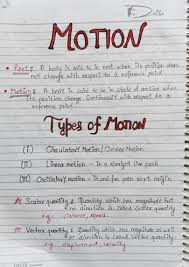 MOTION
Rest : A body is said to be in rest when its position does
not change with respect to a reference point
Motion : A body is said to be in state of motion when
its position change continuously with respect to a
reference point
Types of MOTION
(i) Circulatory Motion / Circular Motion
(ii) Linear motion - In a straight line path
(iii) Oscillatory motion - To and fro path
Scalar quantity : Quantity which has magnitude but
no direction is called Scalar quantity
e.g. distance, speed
Vector quantity : Quantity which has magnitude as well
as direction is called Vector quantity
e.g. displacement, velocity